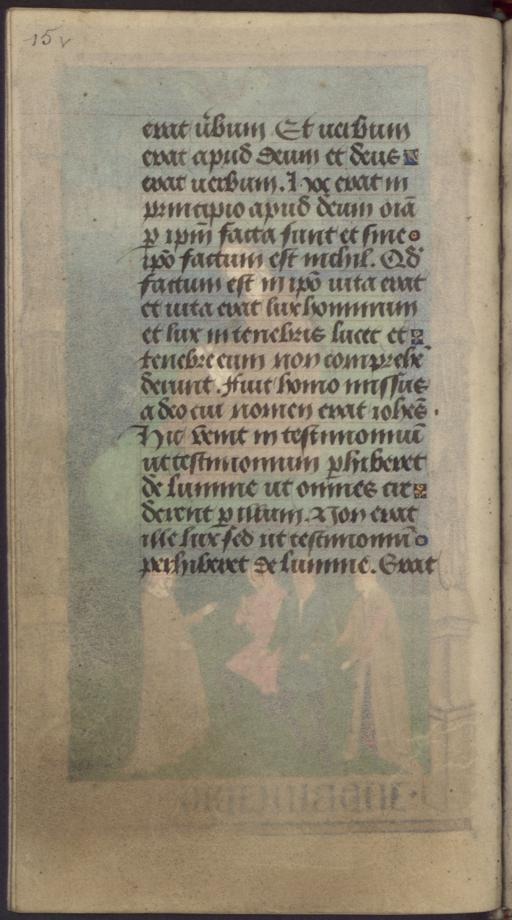 15v
erat ūbum Et uerbum
erat apud deum et deus
erat uerbum. Hoc erat in
principio apud deum oīa
p ipm̄ facta sunt et sine
ipō factum est nichil. Qd̄
factum est in ipō uita erat
et uita erat lux hominum
et lux in tenebris lucet et
tenebre eum non comprehē
derunt. Fuit homo missus
a deo cui nomen erat iohēs.
Hic venit in testimoniū
ut testimonium phiberet
de lumine ut omnes cre
derent p illum. Non erat
ille lux sed ut testimoniū
perhiberet de lumine. Erat
INPRINCIPIO